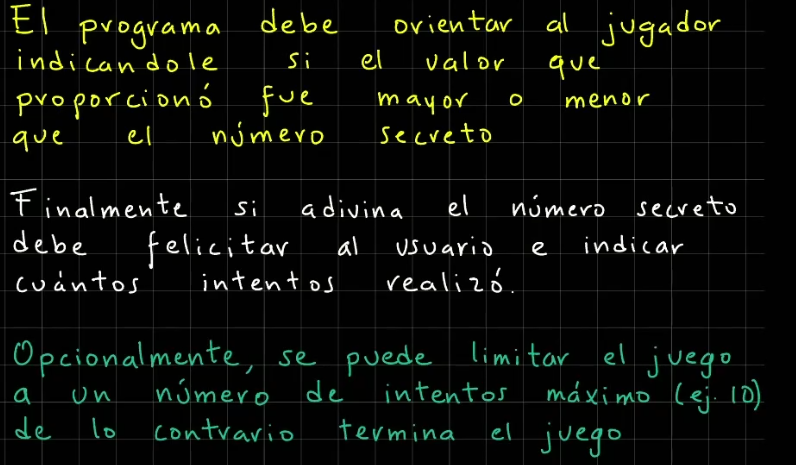 El programa debe orientar al jugador
indicandole si el valor que
proporcionó fue mayor o menor
que el número secreto
Finalmente si adivina el número secreto
debe felicitar al usuario e indicar
cuántos intentos realizó.
Opcionalmente, se puede limitar el juego
a un número de intentos máximo (ej. 10)
de lo contrario termina el juego